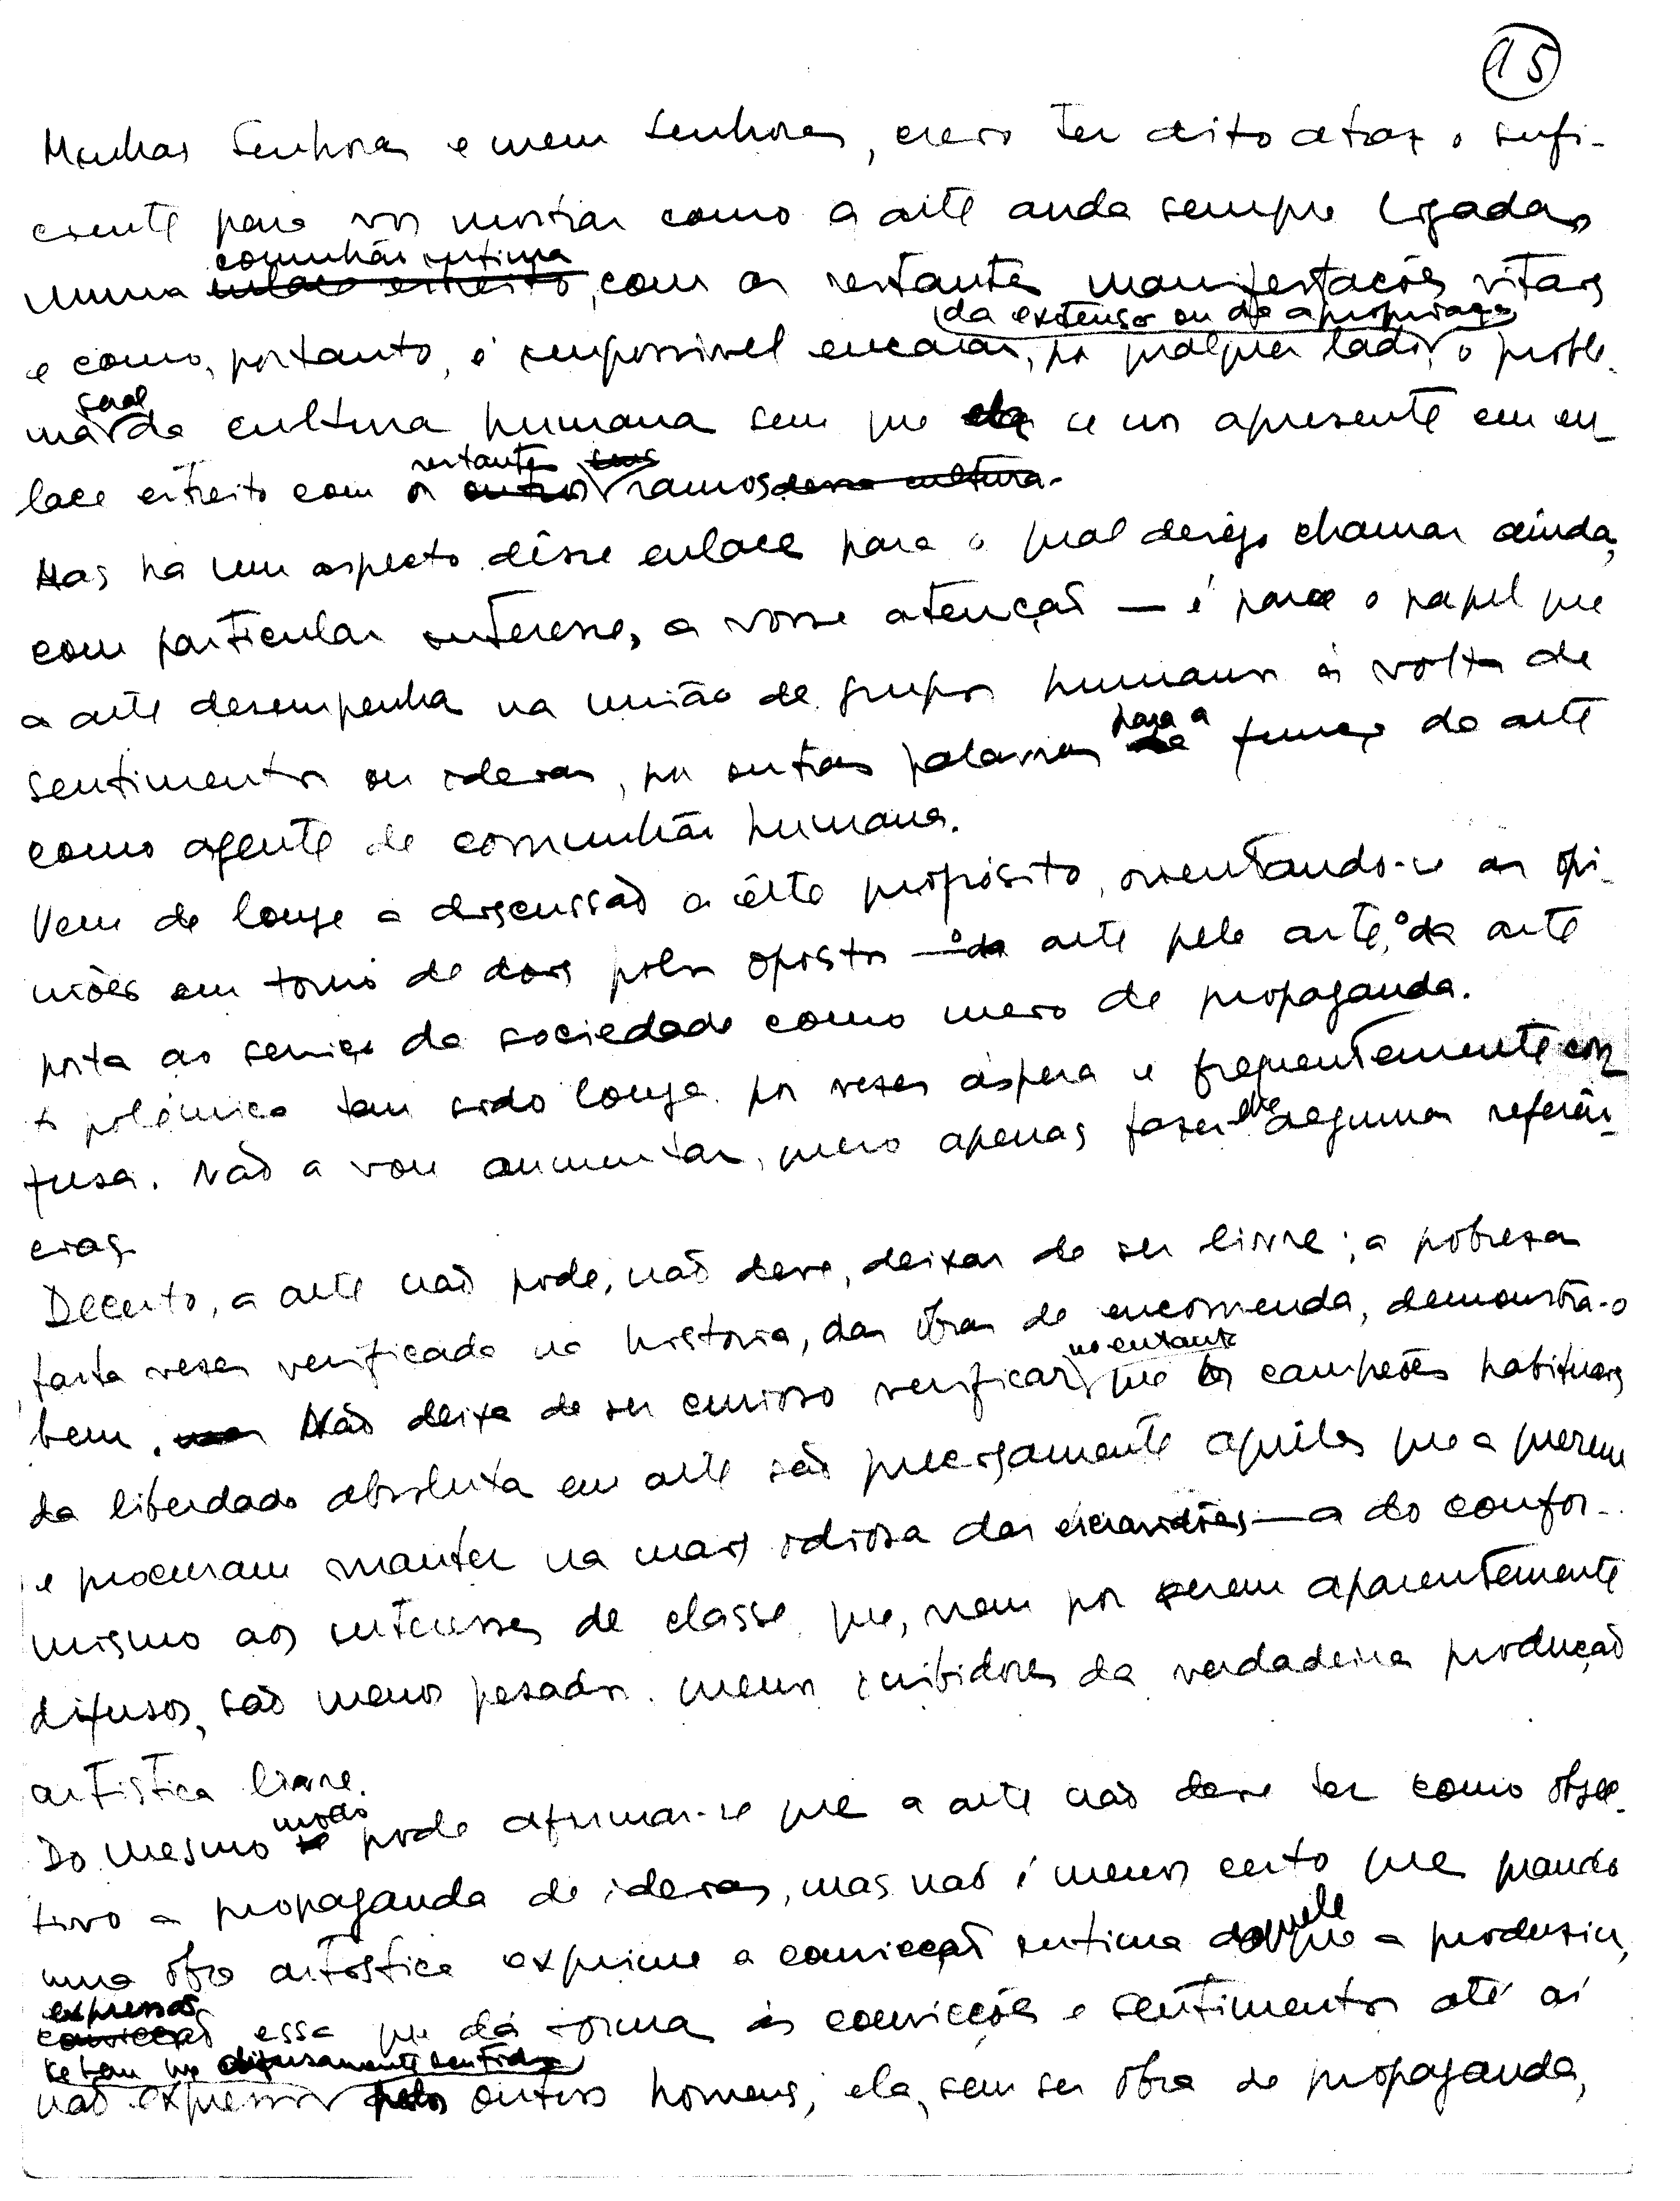 15
Minhas Senhoras e meus Senhores, creio ter dito atraz o sufi-
ciente para vos mostrar como a arte anda sempre ligada,
comunhão intima
numa enlace estreito, com as restantes manifestações vitais
(da extensão ou da apropriação)
e como, portanto, é impossivel encarar, por qualquer lado, o proble-
geral
ma da cultura humana sem que ela se nos apresente em en-
restantes seus
lace estreito com os outros ramos dessa cultura.
Mas há um aspecto dêsse enlace para o qual desejo chamar ainda,
com particular interesse, a vossa atenção — é para o papel que
a arte desempenha na união de grupos humanos à volta de
para a
sentimentos ou ideias, por outras palavras função da arte
como agente de comunhão humana.
Vem de longe a discussão a êste propósito, orientando-se as opi-
niões em torno de dois polos opostos — o da arte pela arte, o da arte
posta ao serviço da sociedade como meio de propaganda.
A polémica tem sido longa, por vezes áspera e frequentemente con-
lhe
fusa. Não a vou aumentar, quero apenas fazer algumas referên-
cias.
Decerto, a arte não pode, não deve, deixar de ser livre; a pobreza
tanta vezes verificada na história, das obras de encomenda, demonstra-o
no entanto
bem. mas Não deixa de ser curioso verificar, que os campeões habituais
da liberdade absoluta em arte são precisamente aquêles que a querem
e procuram manter na mais odiosa das escravidões — a do confor-
mismo aos interesses de classe que, nem por serem aparentemente
difusos, são menos pesados, menos inibidores da verdadeira produção
artistica livre.
modo
Do mesmo se pode afirmar-se que a arte não deve ter como objec-
tivo a propaganda de ideias, mas não é menos certo que quando
quele
uma obra artistica exprime a convicção intima da que a produziu,
expressão
convicção essa que dá forma às convicções e sentimentos até aí
se bem que difusamente sentidos
não expressos pelos outros homens, ela, sem ser obra de propaganda,